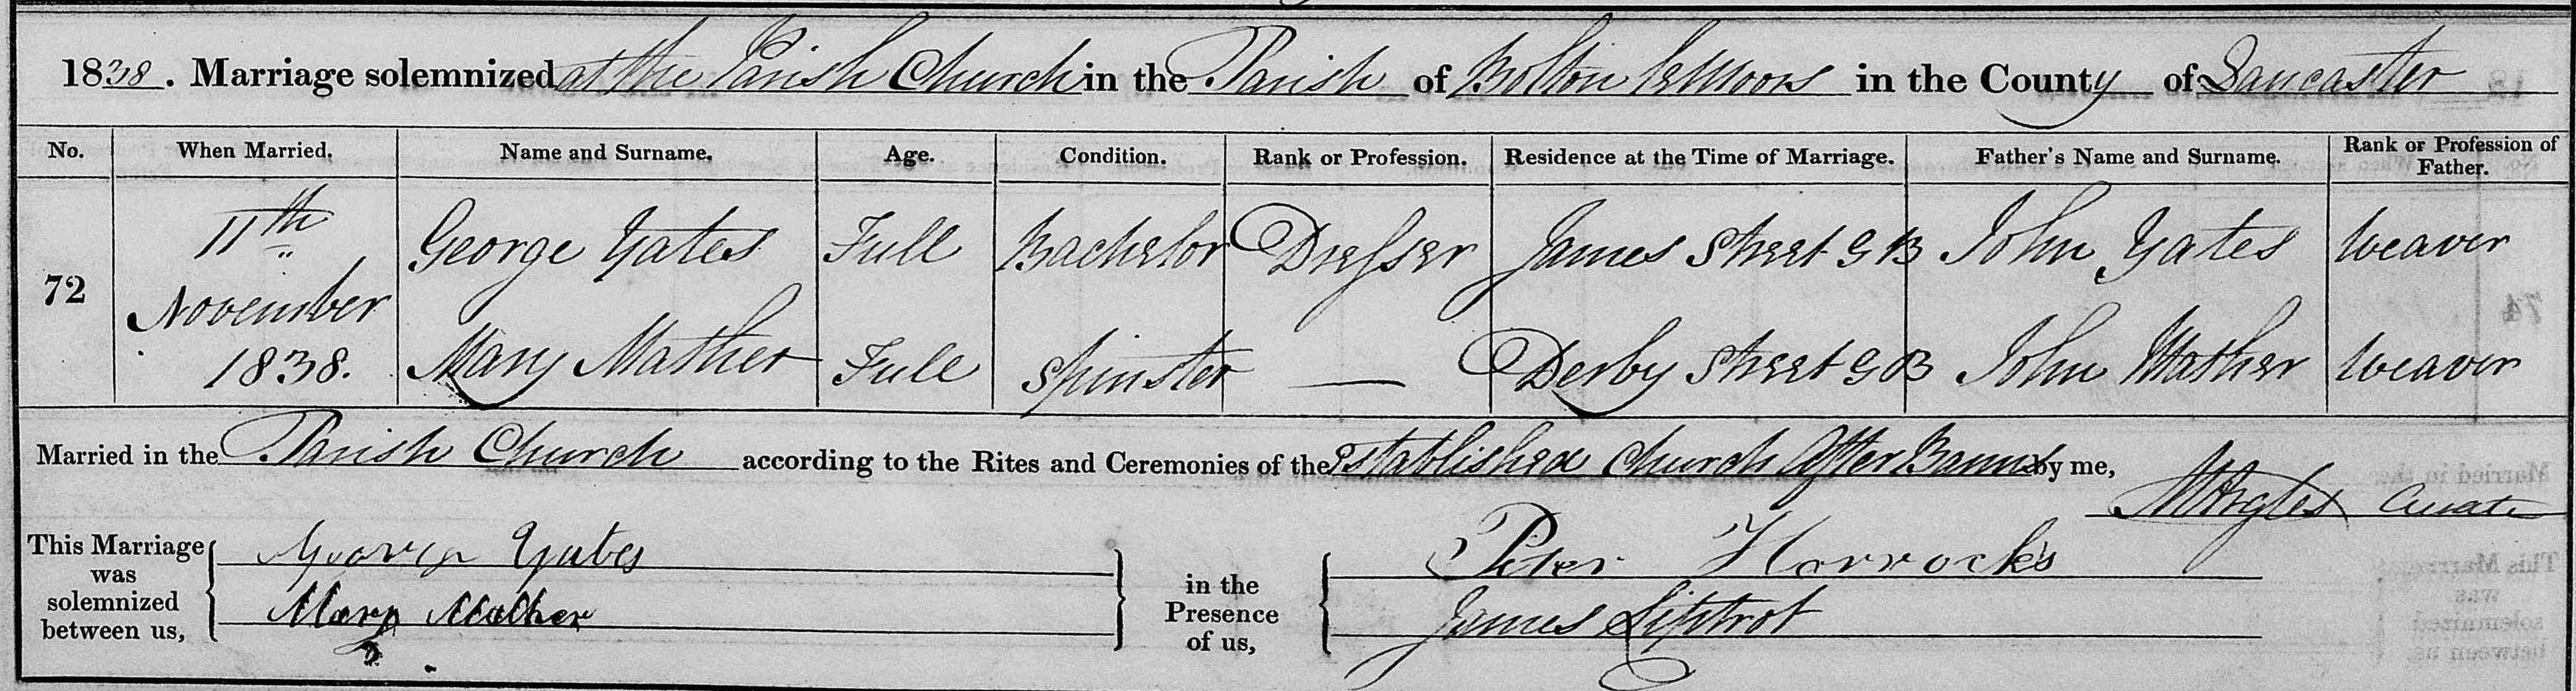 1838. Marriage solemnized at the Parish Church in the Parish of Bolton le Moors in the County of Lancaster
No. When Married. Name and Surname. Age. Condition. Rank or Profession. Residence at the Time of Marriage. Father's Name and Surname. Rank or Profession of Father.
72 11th November 1838. George Yates Full Bachelor Dresser James Street G B John Yates Weaver
Mary Mather Full Spinster — Derby Street G B John Mather Weaver
Married in the Parish Church according to the Rites and Ceremonies of the Established Church After Banns by me,
Curate
This Marriage was solemnized between us, George Yates Mary Mather in the Presence of us, Peter Horrocks James Liptrot